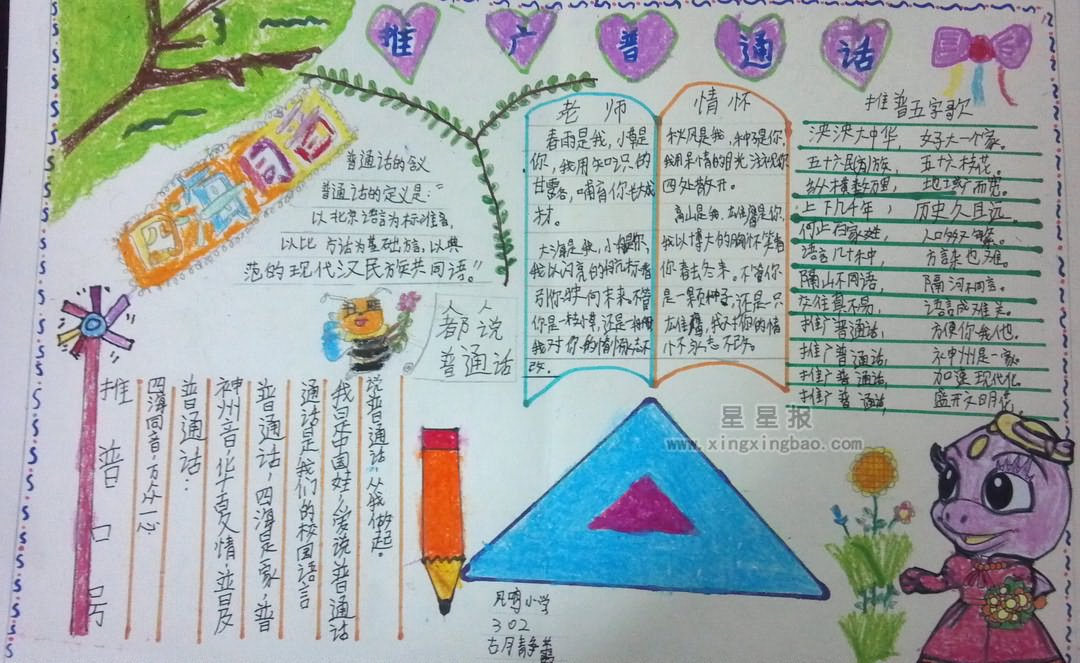 推广普通话
四海同音
普通话的含义
普通话的定义是："
以北京语言为标准音，
以北方话为基础方言，以典
范的现代汉民族共同语。"
人人
都说
普通话
老师
春雨是我，小草是
你，我用知识的
甘露，哺育你长大成
材。
大海是我，小船是你，
我以闪亮的航标
引你驶向未来。不管
你是一棵小草，还是一
我对你的情怀永志不
改。
情怀
秋风是我，种子是你，
我用深情的目光注视你
四处散开。
高山是我，雄鹰是你，
我以博大的胸怀等着
你春去冬来。不管你
是一颗种子，还是一只
雄鹰，我对你的情
怀永志不改。
推普五字歌
泱泱大中华，好大一个家。
五十六民族，五十六枝花。
纵横数万里，地域广而宽。
上下几千年，历史久且远。
何止百家姓，人口多又繁。
语言几十种，方言杂也难。
隔山不同语，隔河不同言。
交往真不易，语言成难关。
推广普通话，方便你我他。
推广普通话，神州是一家。
推广普通话，加速现代化。
推广普通话，盛开文明花。
星星报
www.xingxingbao.com
说普通话，从我做起。
我是中国娃，爱说普通话
通话是我们的校园语言
普通话，四海是一家，普
神州音，华夏情，普及
普通话：
四海同音，万众一心
推普口号
凤鸣小学
302